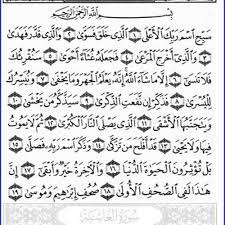 بِسْمِ اللَّهِ الرَّحْمَٰنِ الرَّحِيمِ
سَبِّحِ اسْمَ رَبِّكَ الْأَعْلَى ١ الَّذِي خَلَقَ فَسَوَّىٰ ٢ وَالَّذِي قَدَّرَ فَهَدَىٰ
٣ وَالَّذِي أَخْرَجَ الْمَرْعَىٰ ٤ فَجَعَلَهُ غُثَاءً أَحْوَىٰ ٥ سَنُقْرِئُكَ
فَلَا تَنسَىٰ ٦ إِلَّا مَا شَاءَ اللَّهُ إِنَّهُ يَعْلَمُ الْجَهْرَ وَمَا يَخْفَىٰ ٧ وَنُيَسِّرُكَ
لِلْيُسْرَىٰ ٨ فَذَكِّرْ إِن نَّفَعَتِ الذِّكْرَىٰ ٩ سَيَذَّكَّرُ مَن يَخْشَىٰ ١٠
وَيَتَجَنَّبُهَا الْأَشْقَى ١١ الَّذِي يَصْلَى النَّارَ الْكُبْرَىٰ ١٢ ثُمَّ لَا يَمُوتُ
فِيهَا وَلَا يَحْيَىٰ ١٣ قَدْ أَفْلَحَ مَن تَزَكَّىٰ ١٤ وَذَكَرَ اسْمَ رَبِّهِ فَصَلَّىٰ ١٥
بَلْ تُؤْثِرُونَ الْحَيَاةَ الدُّنْيَا ١٦ وَالْآخِرَةُ خَيْرٌ وَأَبْقَىٰ ١٧ إِنَّ
هَٰذَا لَفِي الصُّحُفِ الْأُولَىٰ ١٨ صُحُفِ إِبْرَاهِيمَ وَمُوسَىٰ ١٩
سُورَةُ الْغَاشِيَةِ